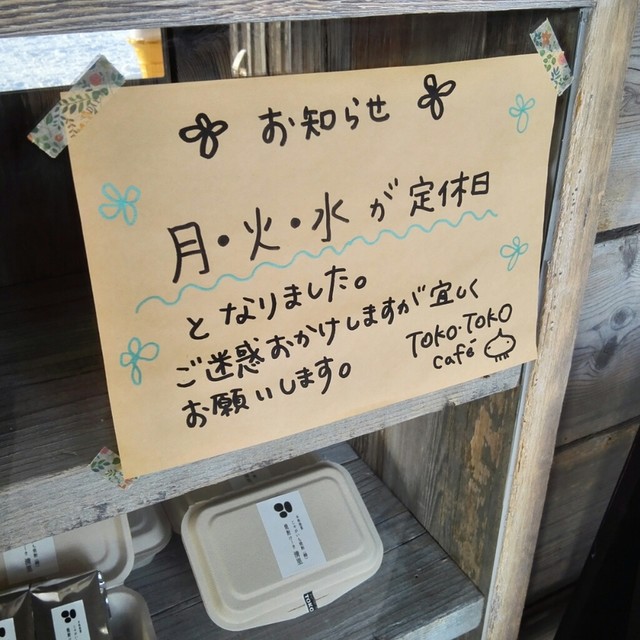 お知らせ
月・火・水が定休日
となりました。
ご迷惑おかけしますが宜しく
お願いします。
TOKO・TOKO
café